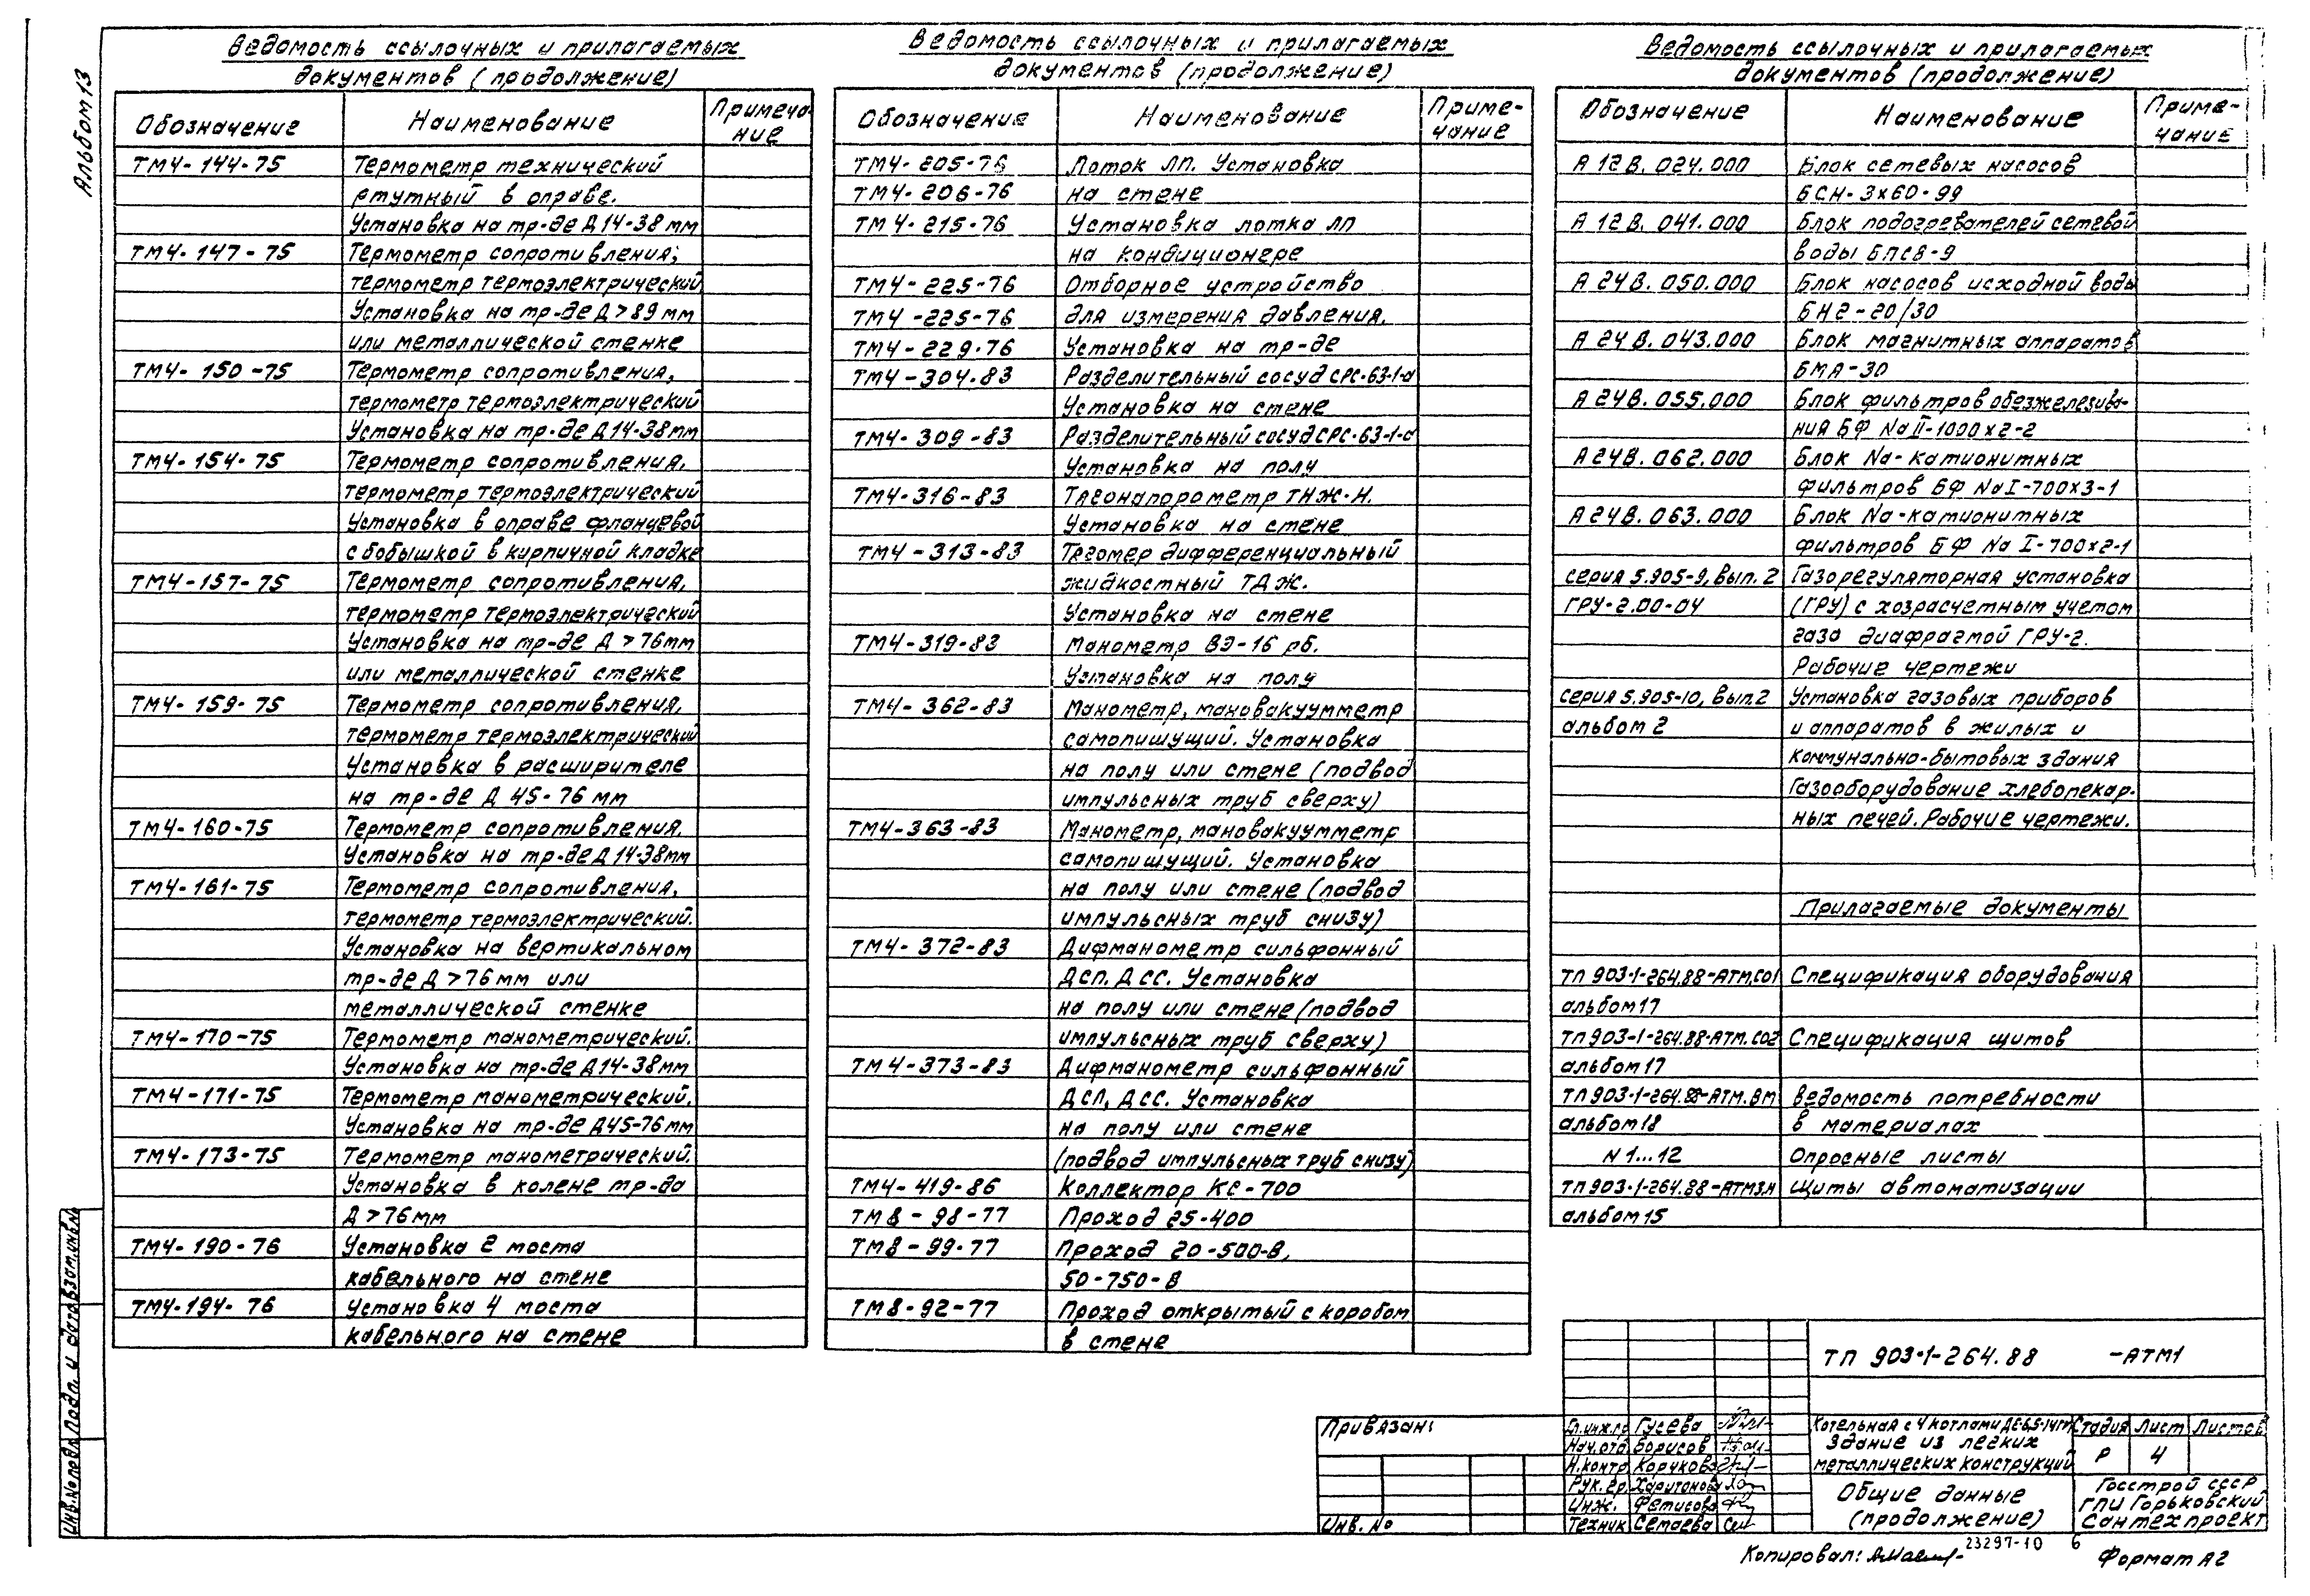 Альбом 13
Ведомость ссылочных и прилагаемых
документов (продолжение)
Обозначение Наименование Примеча-
ние
ТМ4-144-75 Термометр технический
ртутный в оправе.
Установка на тр-де Д14-38 мм
ТМ4-147-75 Термометр сопротивления;
термометр термоэлектрический
Установка на тр-де Д>89 мм
или металлической стенке
ТМ4-150-75 Термометр сопротивления,
термометр термоэлектрический
Установка на тр-де Д14-38мм
ТМ4-154-75 Термометр сопротивления.
термометр термоэлектрический
Установка в оправе фланцевой
с бобышкой в кирпичной кладке
ТМ4-157-75 Термометр сопротивления,
термометр термоэлектрический
Установка на тр-де Д >76мм
или металлической стенке
ТМ4-159-75 Термометр сопротивления,
термометр термоэлектрический
Установка в расширителе
на тр-де Д 45-76 мм
ТМ4-160-75 Термометр сопротивления.
Установка на тр-де Д 14-38мм
ТМ4-161-75 Термометр сопротивления,
термометр термоэлектрический.
Установка на вертикальном
тр-де Д >76мм или
металлической стенке
ТМ4-170-75 Термометр манометрический.
Установка на тр-де Д14-38мм
ТМ4-171-75 Термометр манометрический.
Установка на тр-де Д45-76мм
ТМ4-173-75 Термометр манометрический.
Установка в колене тр-да
Д >76мм
ТМ4-190-76 Установка 2 моста
кабельного на стене
ТМ4-194-76 Установка 4 моста
кабельного на стене
Ведомость ссылочных и прилагаемых
документов (продолжение)
Обозначение Наименование Приме-
чание
ТМ4-205-76 Лоток ЛП. Установка
ТМ4-206-76 на стене
ТМ4-215-76 Установка лотка ЛП
на кондиционере
ТМ4-225-76 Отборное устройство
ТМ4-225-76 для измерения давления.
ТМ4-229-76 Установка на тр-де
ТМ4-304-83 Разделительный сосуд СРС-63-1-а
Установка на стене
ТМ4-309-83 Разделительный сосуд СРС-63-1-а
Установка на полу
ТМ4-316-83 Тягонапорометр ТНЖ-Н.
Установка на стене
ТМ4-313-83 Тягомер дифференциальный
жидкостный ТДЖ.
Установка на стене
ТМ4-319-83 Манометр ВЭ-16 рб.
Установка на полу
ТМ4-362-83 Манометр, мановакуумметр
самопишущий. Установка
на полу или стене (подвод
импульсных труб сверху)
ТМ4-363-83 Манометр, мановакуумметр
самопишущий. Установка
на полу или стене (подвод
импульсных труб снизу)
ТМ4-372-83 Дифманометр сильфонный
ДСП, ДСС. Установка
на полу или стене (подвод
импульсных труб сверху)
ТМ4-373-83 Дифманометр сильфонный
ДСП, ДСС. Установка
на полу или стене
(подвод импульсных труб снизу)
ТМ4-419-86 Коллектор КС-700
ТМ8-98-77 Проход 25-400
ТМ8-99-77 Проход 20-500-В,
50-750-В
ТМ8-92-77 Проход открытый с коробом
в стене
Ведомость ссылочных и прилагаемых
документов (продолжение)
Обозначение Наименование Приме-
чание
А 12 В. 024.000 Блок сетевых насосов
БСН-3х60-99
А 12 В. 041.000 Блок подогревателей сетевой
воды БПСВ-9
А 24 В. 050.000 Блок насосов исходной воды
БН2-20/30
А 24 В. 043.000 Блок магнитных аппаратов
БМА-30
А 24 В. 055.000 Блок фильтров обезжелезива-
ния БФ NaII-1000х2-2
А 24 В. 062.000 Блок Na-катионитных
фильтров БФ NaI-700х3-1
А 24 В. 063.000 Блок Na-катионитных
фильтров БФ Na I-700х2-1
серия 5.905-9, вып. 2 Газорегуляторная установка
ГРУ-2.00-04 (ГРУ) с хозрасчетным учетом
газа диафрагмой ГРУ-2.
Рабочие чертежи
серия 5.905-10, вып.2 Установка газовых приборов
альбом 2 и аппаратов в жилых и
коммунально-бытовых здания
Газооборудование хлебопекар-
ных печей. Рабочие чертежи.
Прилагаемые документы
ТП 903-1-264.88-АТМ.СО1 Спецификация оборудования
альбом 17
ТП 903-1-264.88-АТМ.СО2 Спецификация щитов
альбом 17
ТП 903-1-264.88-АТМ.ВМ Ведомость потребности
альбом 18 в материалах
N 1...12 Опросные листы
ТП 903-1-264.88-АТМЗ.Н Щиты автоматизации
альбом 15
ТП 903-1-264.88 -АТМ1
Привязан:
Инв. No
Гл.инж.пр Гусева
Нач.отд Борисов
Н.контр
Рук.гр. Харитонова
Инж. Фетисова
Техник Семаева
Котельная с 4 котлами ДЕ-6,5-14ГМ
Здание из легких
металлических конструкций
Стадия Лист Листов
Р 4
Общие данные
(продолжение)
Госстрой СССР
ГПИ Горьковский
Сантехпроект
Копировал:
23297-10 6
Формат А2
Взам.инв.№
Подп. и дата
Инв.№ подл.